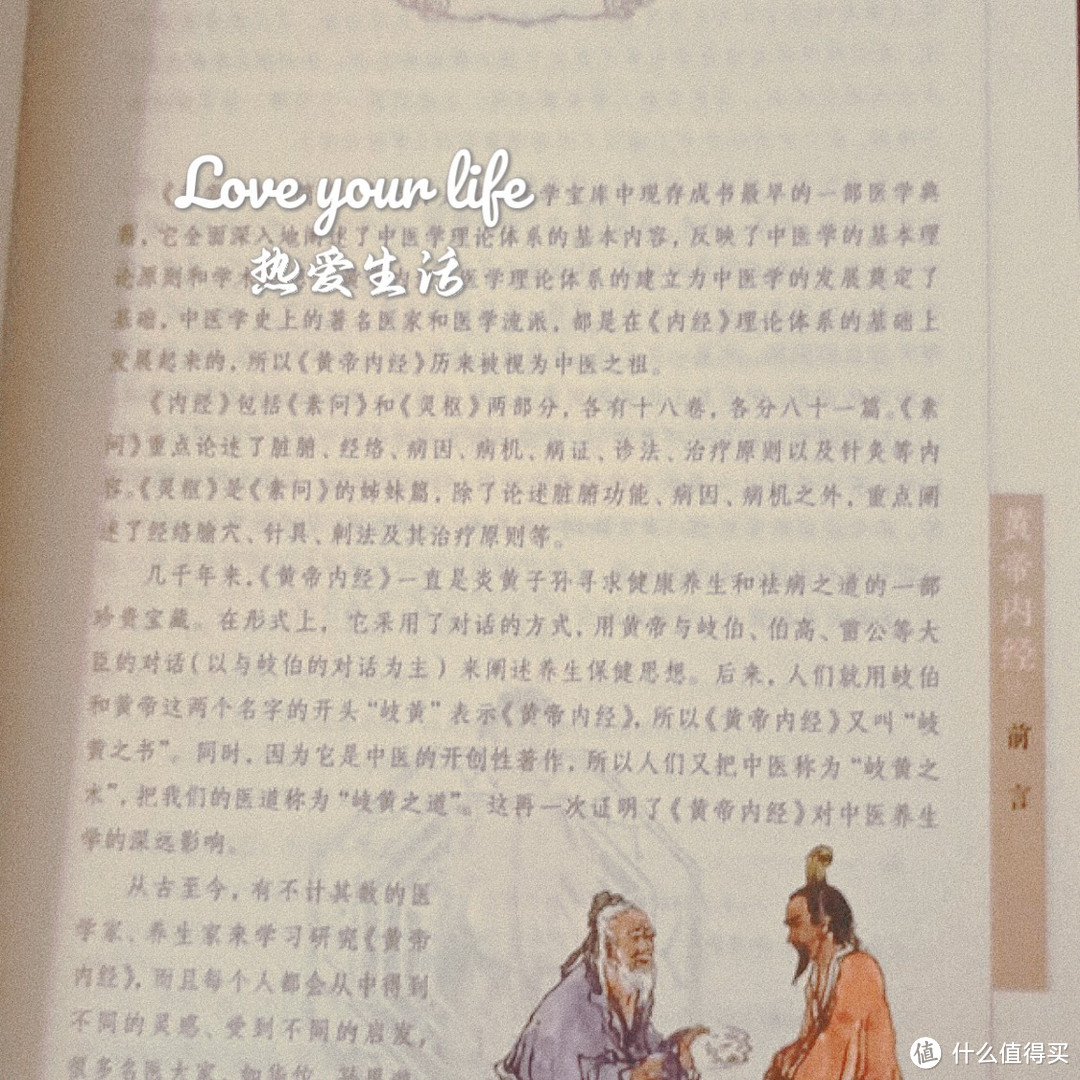 Love your life
热爱生活
学宝库中现存成书最早的一部医学典
籍，它全面深入地阐述了中医学理论体系的基本内容，反映了中医学的基本理
论原则和学术 医学理论体系的建立为中医学的发展奠定了
基础，中医学史上的著名医家和医学流派，都是在《内经》理论体系的基础上
发展起来的，所以《黄帝内经》历来被视为中医之祖。
《内经》包括《素问》和《灵枢》两部分，各有十八卷，各分八十一篇。《素
问》重点论述了脏腑、经络、病因、病机、病证、诊法、治疗原则以及针灸等内
容。《灵枢》是《素问》的姊妹篇，除了论述脏腑功能、病因、病机之外，重点阐
述了经络腧穴、针具、刺法及其治疗原则等。
几千年来，《黄帝内经》一直是炎黄子孙寻求健康养生和祛病之道的一部
珍贵宝藏。在形式上，它采用了对话的方式，用黄帝与岐伯、伯高、雷公等大
臣的对话（以与岐伯的对话为主）来阐述养生保健思想。后来，人们就用岐伯
和黄帝这两个名字的开头“岐黄”表示《黄帝内经》，所以《黄帝内经》又叫“岐
黄之书”。同时，因为它是中医的开创性著作，所以人们又把中医称为“岐黄之
术”，把我们的医道称为“岐黄之道”。这再一次证明了《黄帝内经》对中医养生
学的深远影响。
从古至今，有不计其数的医
学家、养生家来学习研究《黄帝
内经》，而且每个人都会从中得到
不同的灵感、受到不同的启发，
很多名医大家，如华佗、孙思邈
黄帝内经
前言
值 什么值得买